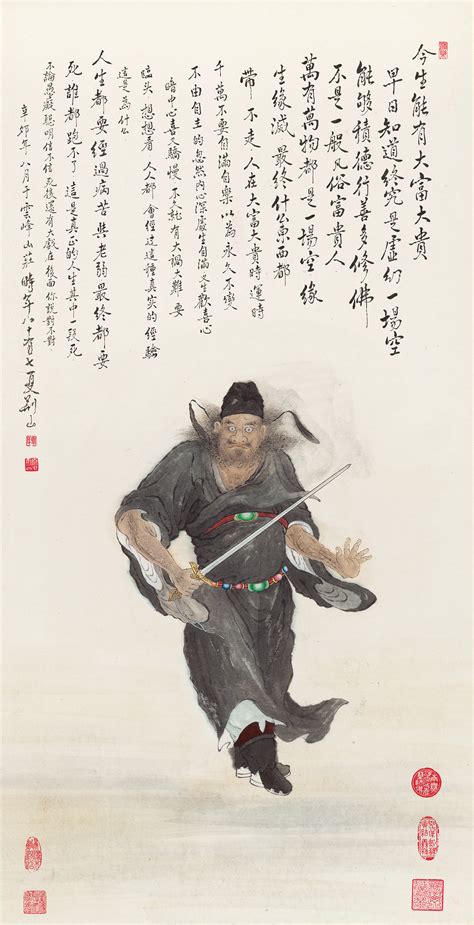 今生能有大富大貴
早日知道終究是虛幻一場空
能够積德行善多修佛
不是一般凡俗富貴人
萬有萬物都是一場空緣
生緣滅最終什么東西都
帶不走人在大富大貴時運時
千萬不要自滿自樂以為永久不變
不由自主的忽然內心深處生自滿又生歡喜心
暗中心喜又驕慢不久就有大禍大難要
臨头想想看人人都會經过這種真实的經驗
這是為什么
人生都要經過病苦與老弱最終都要
死誰都跑不了這是真正的人生其中一段死
不論愚癡聰明信不信死後還有大戲在後面你說對不對
辛卯年八月于雲峰山莊時年八十有七夏荊山